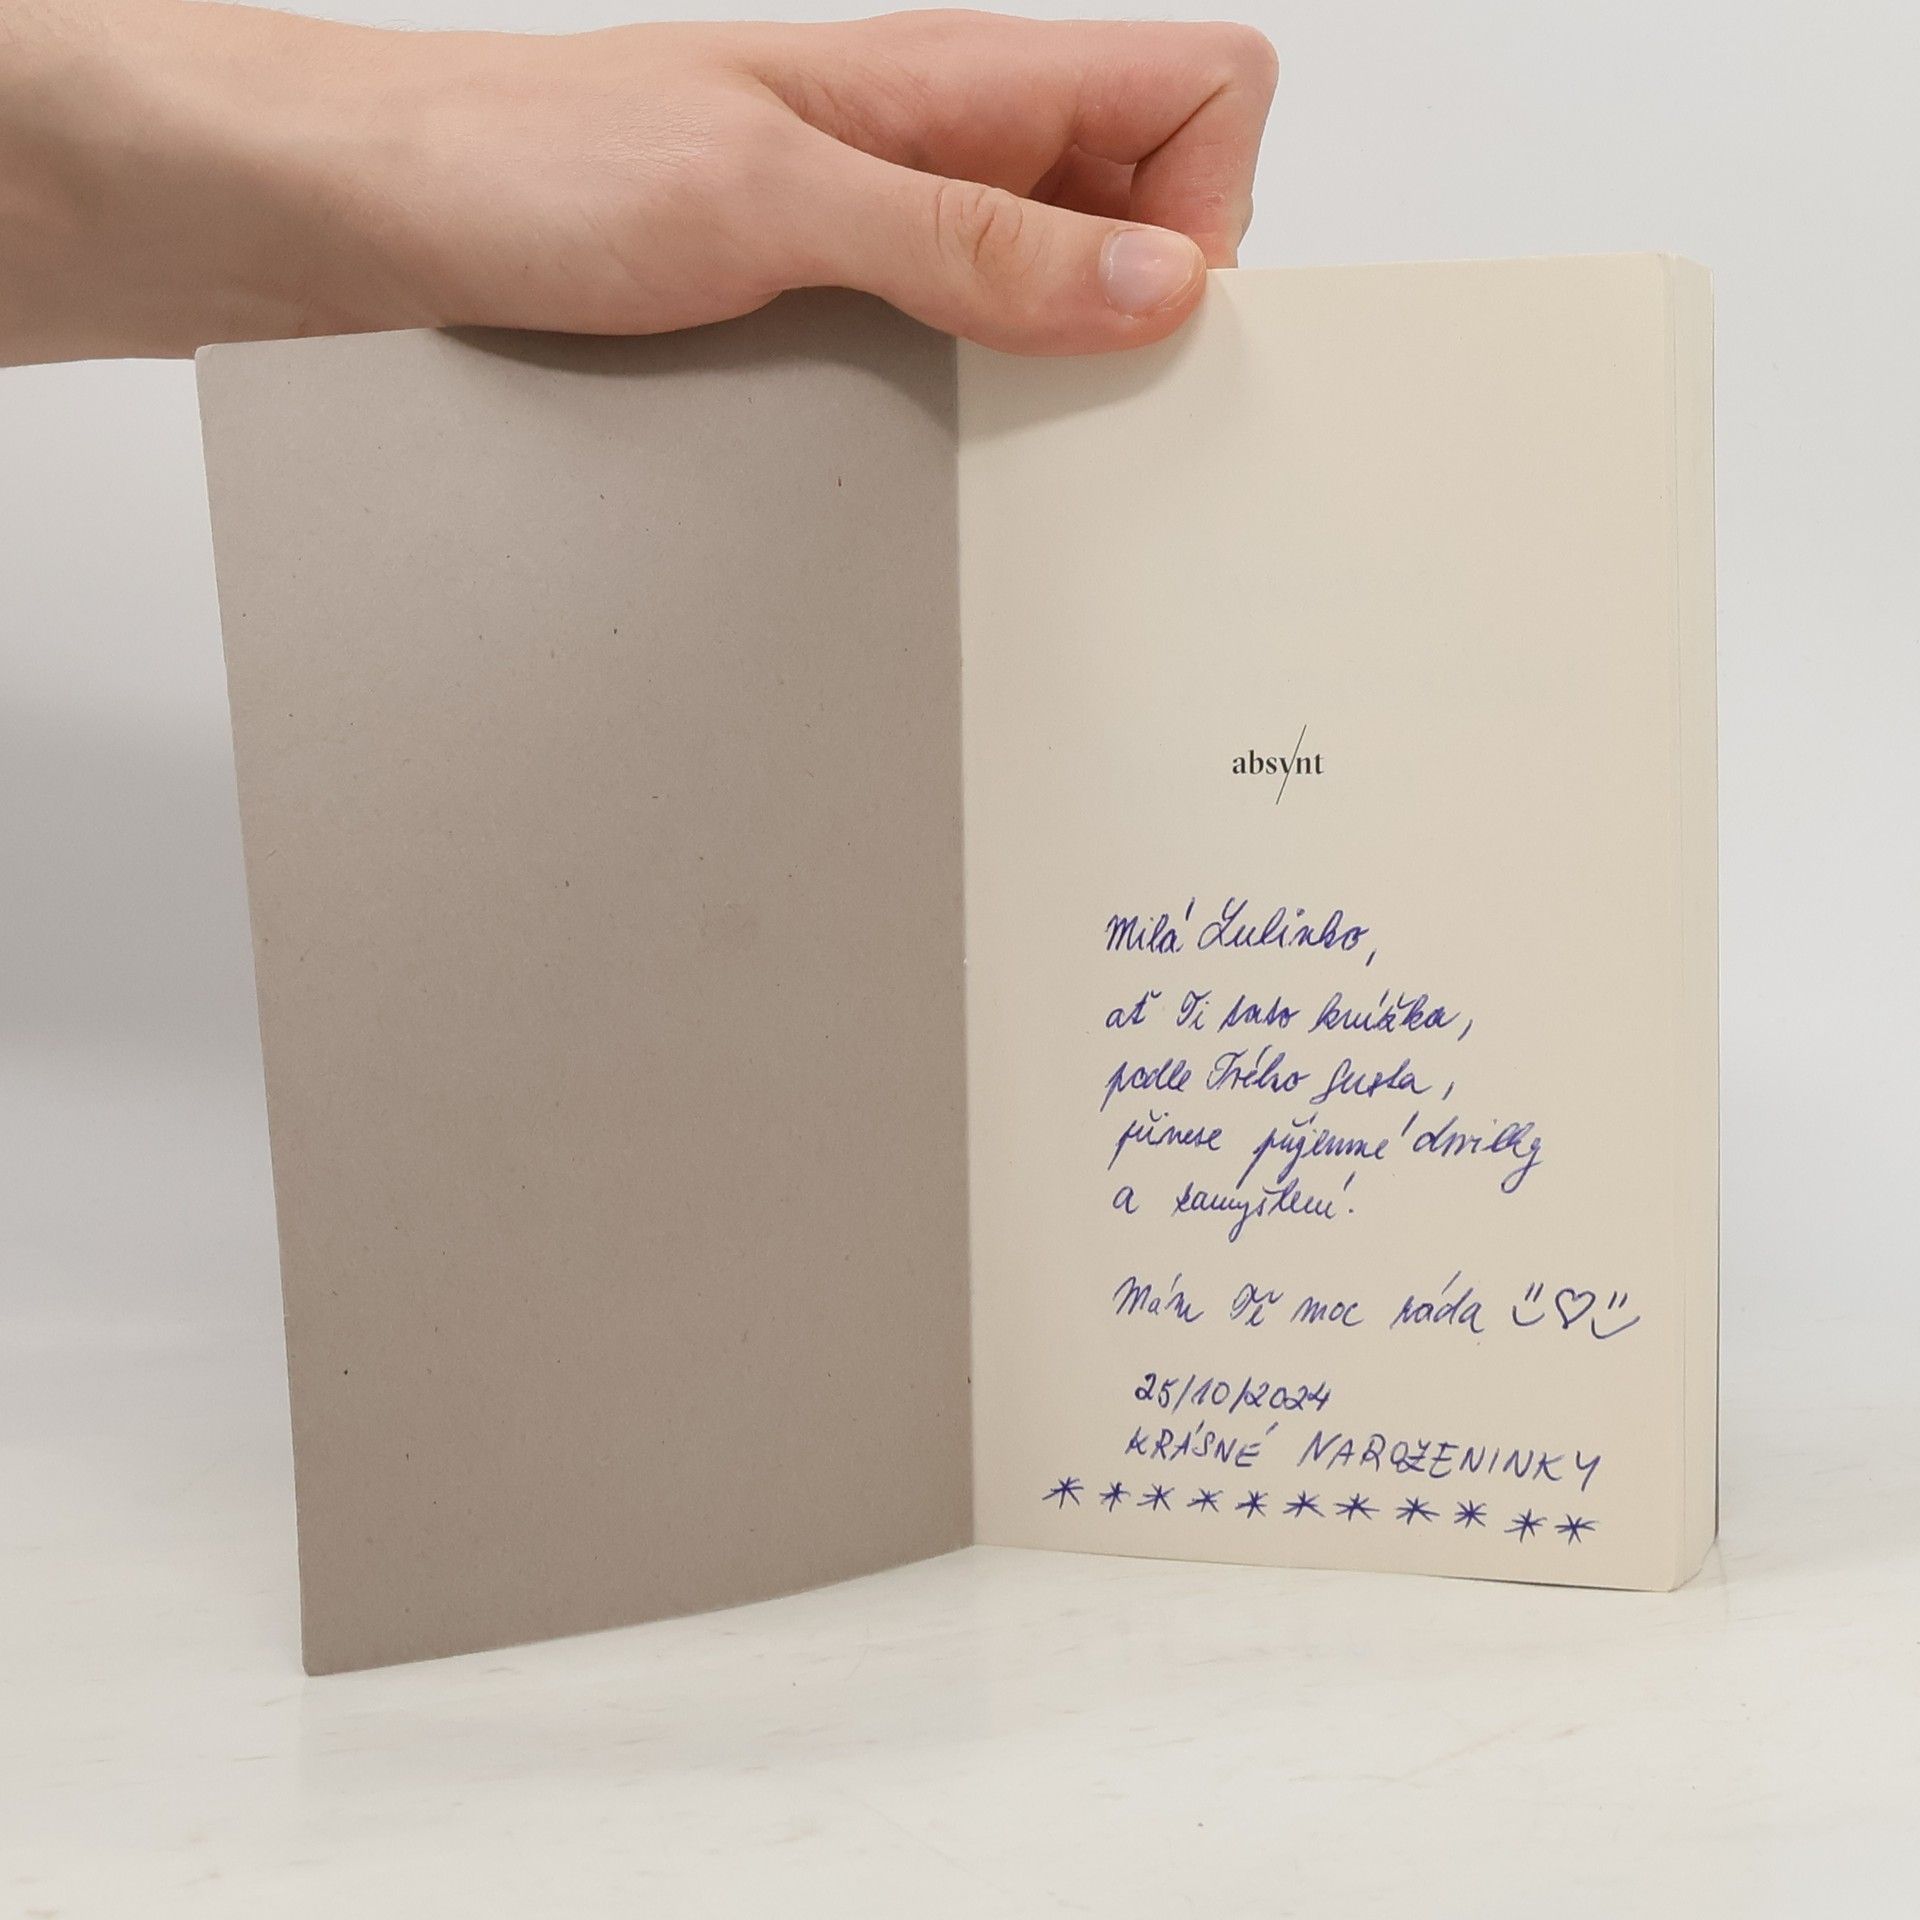 absynt
Milá Lulinko,
ať Ti tato knížka,
podle Tvého gusta,
přinese příjemné chvilky
a zamyšlení.
Mám Tě moc ráda
25/10/2024
KRÁSNÉ NAROZENINKY
***********